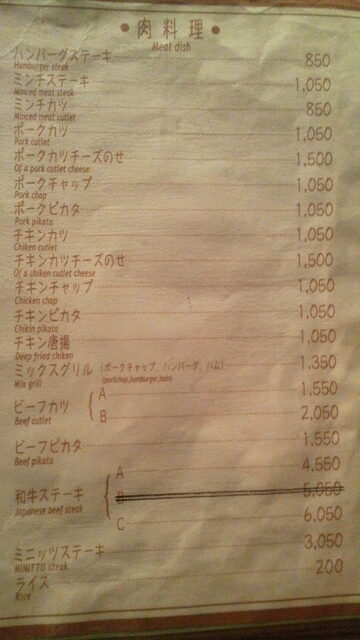 • 肉料理 •
Meat dish
ハンバーグステーキ 850
Hamburger steak
ミンチステーキ 1,050
Minced meat steak
ミンチカツ 850
Minced meat cutlet
ポークカツ 1,050
Pork cutlet
ポークカツチーズのせ 1,500
Of a pork cutlet cheese
ポークチャップ 1,050
Pork chap
ポークピカタ 1,050
Pork pikata
チキンカツ 1,050
Chiken cutlet
チキンカツチーズのせ 1,500
Of a chiken cutlet cheese
チキンチャップ 1,050
Chicken chap
チキンピカタ 1,050
Chikin pikata
チキン唐揚 1,050
Deep fried chiken
ミックスグリル (ポークチャップ、ハンバーグ、ハム) 1.350
Mix grill (porkchap,hamburger,ham)
ビーフカツ A 1,550
Beef cutlet B 2,050
ビーフピカタ 1,550
Beef pikata
A 4,550
和牛ステーキ B 5,050
Japanese beef steak
C 6,050
ミニッツステーキ 3,050
MINITTU steak
ライス 200
Rice